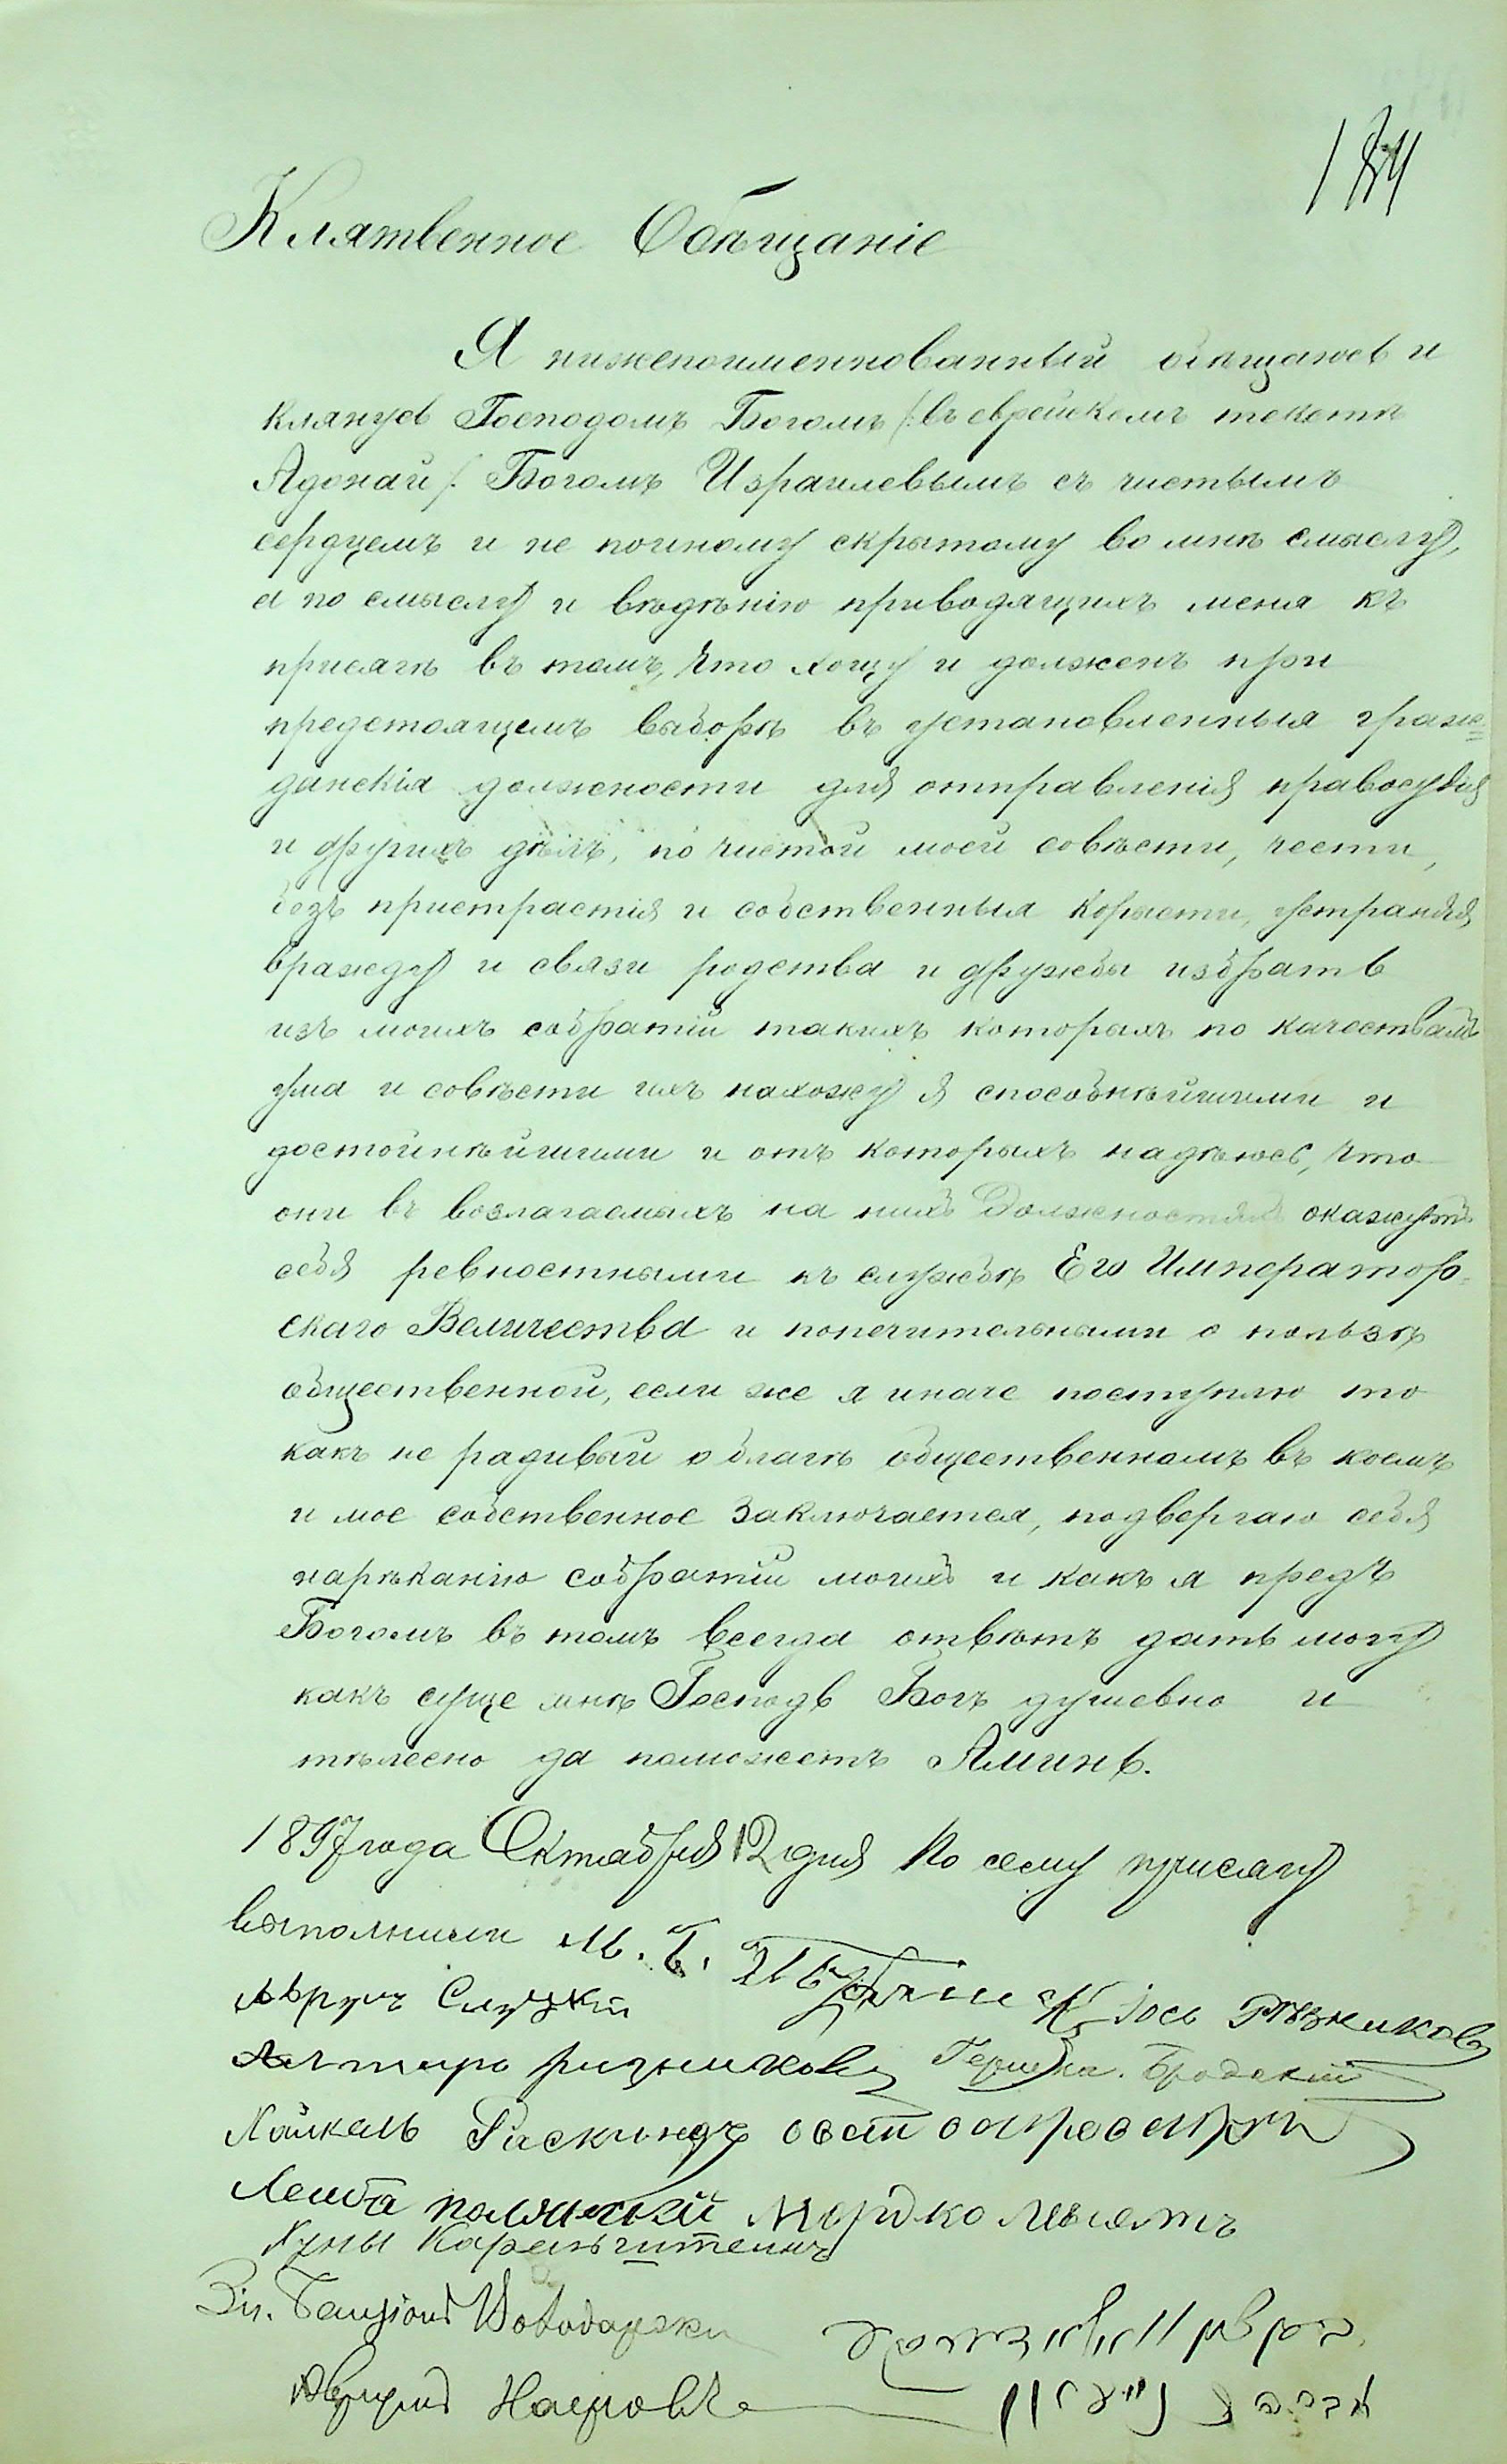 184
Клятвенное Обѣщаніе
Я нижепоименнованный обѣщаюсь и
клянусь Господомъ Богомъ /:въ еврейскомъ текстѣ
Адонай/: Богомъ Израилевымъ съ чистымъ
сердцемъ и не поиному скрытому во мнѣ смыслу,
а по смыслу и вѣдѣнію приводящихъ меня къ
присягѣ въ томъ, что хощу и долженъ при
предстоящемъ выборѣ въ установленныя граж=
данскія должности для отправленія правосудія
и другихъ дѣлъ, по чистой моей совѣсти, чести,
безъ пристрастія и собственныя корысти, устраняя
вражду и связи родства и дружбы избрать
изъ моихъ собратій такихъ которыхъ по качествамъ
ума и совѣсти ихъ нахожу я способнѣйшими и
достойнѣйшими и отъ которыхъ надѣюсь, что
они въ возлагаемыхъ на нихъ должностяхъ окажутъ
себя ревностными къ службѣ Его Император=
скаго Величества и попечительными о пользѣ
общественной, если же я иначе поступлю то
какъ не радивый о благѣ общественномъ въ коемъ
и мое собственное заключается, подвергаю себя
нарѣканію собратій моихъ и какъ я предъ
Богомъ въ томъ всегда отвѣтъ дать могу
какъ суще мнѣ Господь Богъ душевно и
тѣлесно да поможетъ Аминь.
1897 года Октября 12 дня По сему присягу
выполнили М. Б. Іось Рѣзниковъ
Слуцкій
Бродскій
Хайкель Раскиндъ
Лейба Мордко
Хуны
Зил.